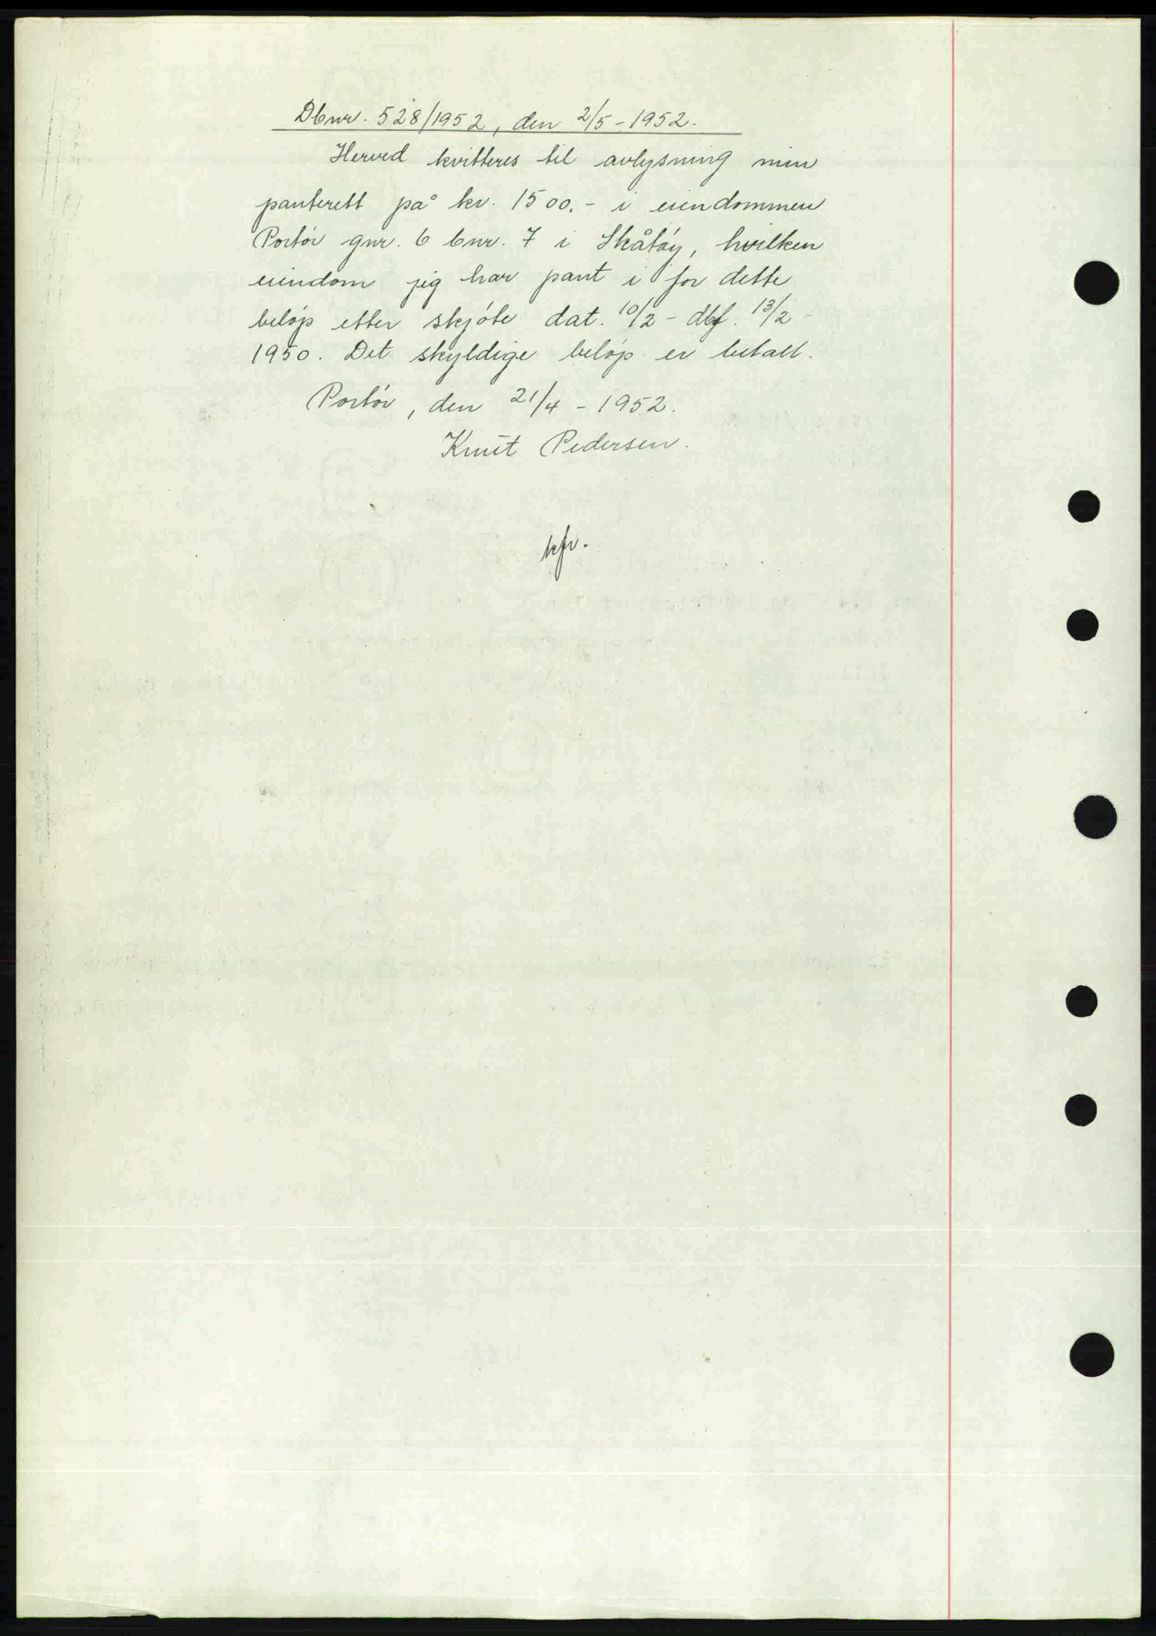 Dbnr. 528/1952, den 2/5 - 1952.
Herved kvitteres til avlysning min
panterett på kr. 1500.- i eiendommen
Portør gnr. 6 bnr. 7 i Skåtøy, hvilken
eiendom jeg har pant i for dette
beløp etter skjøte dat. 10/2 - dbf. 13/2 -
1950. Det skyldige beløp er betalt.
Portør, den 21/4 - 1952.
Knut Pedersen.